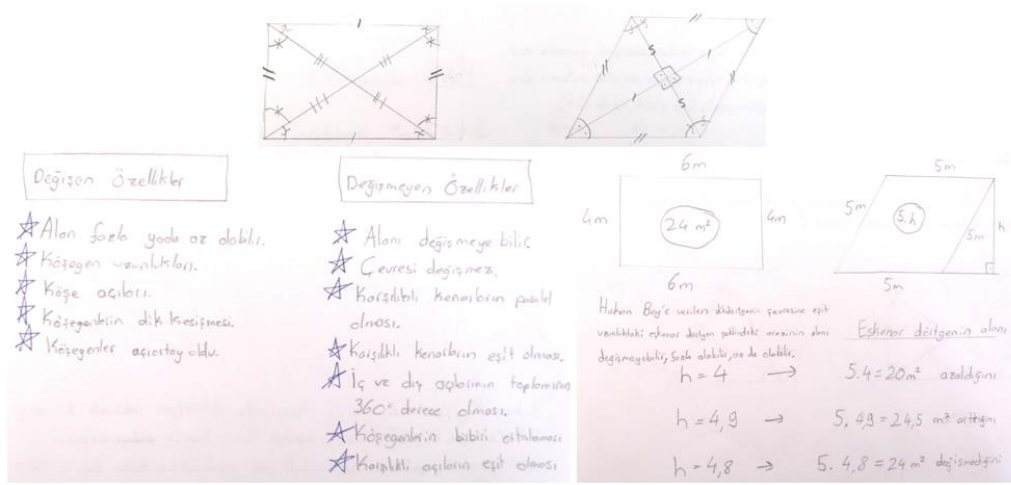 Değişen Özellikler
Alan fazla yada az olabilir.
Köşegen uzunlukları.
Köşe açıları.
Köşegenlerin dik kesişmesi.
Köşegenler açıortay oldu.
Değişmeyen Özellikler
Alanı değişmeye bilir
Çevresi değişmez.
Karşılıklı kenarların paralel
olması.
Karşılıklı kenarların eşit olması.
İç ve dış açılarının toplamının
360° derece olması.
Köşegenlerin birbiri ortalaması
Karşılıklı açıların eşit olması
6m
4m
24 m²
4m
6m
5m
5m
5.h
5m
h
5m
Hakan Bey'e verilen dikdörtgenin çevresine eşit
uzunluktaki eşkenar dörtgen şeklindeki arazinin alanı
değişmeyebilir, fazla olabilir, az da olabilir.
Eşkenar dörtgenin alanı
h = 4 → 5.4 = 20m² azaldığını
h = 4,9 → 5. 4,9 = 24,5 m² arttığını
h = 4,8 → 5. 4,8 = 24 m² değişmediğini